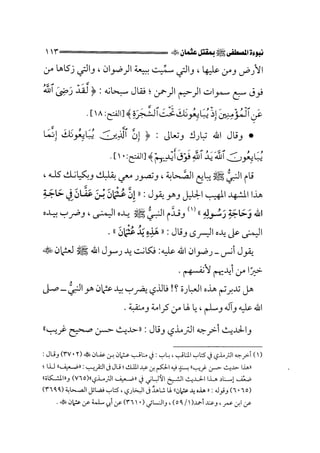 نبوءة المصطفى ﷺ بمقتل عثمان ١١٣
الأرض ومن عليها ، والتي سمِّيت ببيعة الرضوان ، والتي زكاها من
فوق سبع سموات الرحيم الرحمن ؛ فقال سبحانه : ﴿ لَّقَدْ رَضِيَ ٱللَّهُ
عَنِ ٱلْمُؤْمِنِينَ إِذْ يُبَايِعُونَكَ تَحْتَ ٱلشَّجَرَةِ ﴾ [الفتح: ١٨] .
• وقال الله تبارك وتعالى : ﴿ إِنَّ ٱلَّذِينَ يُبَايِعُونَكَ إِنَّمَا
يُبَايِعُونَ ٱللَّهَ يَدُ ٱللَّهِ فَوْقَ أَيْدِيهِمْ ﴾ [الفتح: ١٠] .
قام النبيُّ ﷺ يبايع الصَّحابة ، وتصور معي بقلبك وبكيانك كله ،
هذا المشهد المهيب الجليل وهو يقول : « إِنَّ عُثْمَانَ بْنَ عَفَّانَ فِي حَاجَةِ
اللهِ وَحَاجَةِ رَسُولِهِ »(١) وقدَّم النبيُّ ﷺ يده اليمنى ، وضرب بيده
اليمنى على يده اليسرى وقال : « هَذِهِ يَدُ عُثْمَانَ » .
يقول أنس ـ رضوان الله عليه: فكانت يد رسول الله ﷺ لعثمان
خيرًا من أيديهم لأنفسهم .
هل تدبرتم هذه العبارة ؟! فالذي يضرب بيد عثمان هو النبيُّ ـ صلى
الله عليه وآله وسلم ، يا لها من كرامة ومنقبة .
والحديث أخرجه الترمذي وقال : «حديث حسن صحيح غريب»
(١) أخرجه الترمذي في كتاب المناقب ، باب : في مناقب عثمان بن عفان (٣٧٠٢) وقال :
«هذا حديث حسن غريب» بسندٍ فيه الحكم بن عبد الملك «قال في التقريب : «ضعيف» لذا ؛
ضعَّف إسناد هذا الحديث الشيخ الألباني في «ضعيف الترمذي»(٧٦٥) و«المشكاة»
(٦٠٦٥) وقوله : «هذه يد عثمان» لها شاهدٌ في البخاري ، كتاب فضائل الصحابة (٣٦٩٩)
عن ابن عمر ، وعند أحمد(١/ ٥٩) ، والنسائي (٣٦١٠) عن أبي سلمة عن عثمان .